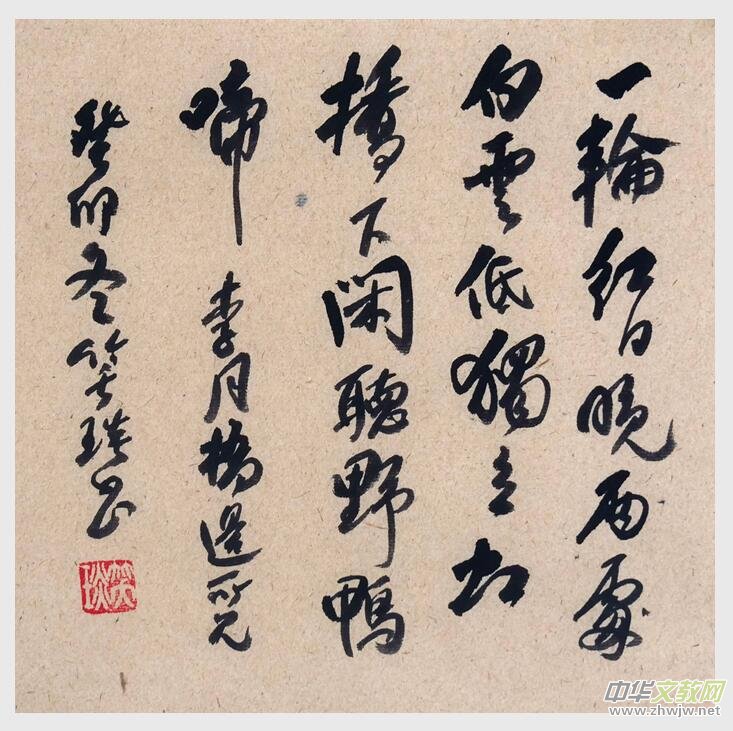 一輪紅日晚
白雲低獨立
橋下閑聽野鴨
啼 李月橋邊所見
癸卯冬笑书
中华文教网
www.zhwjw.net